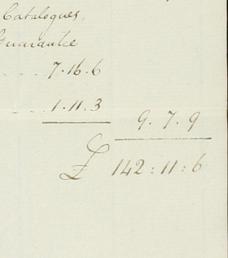 Catalogues,
Guarantee
7.16.6
1.11.3 9.7.9
£ 142:11:6